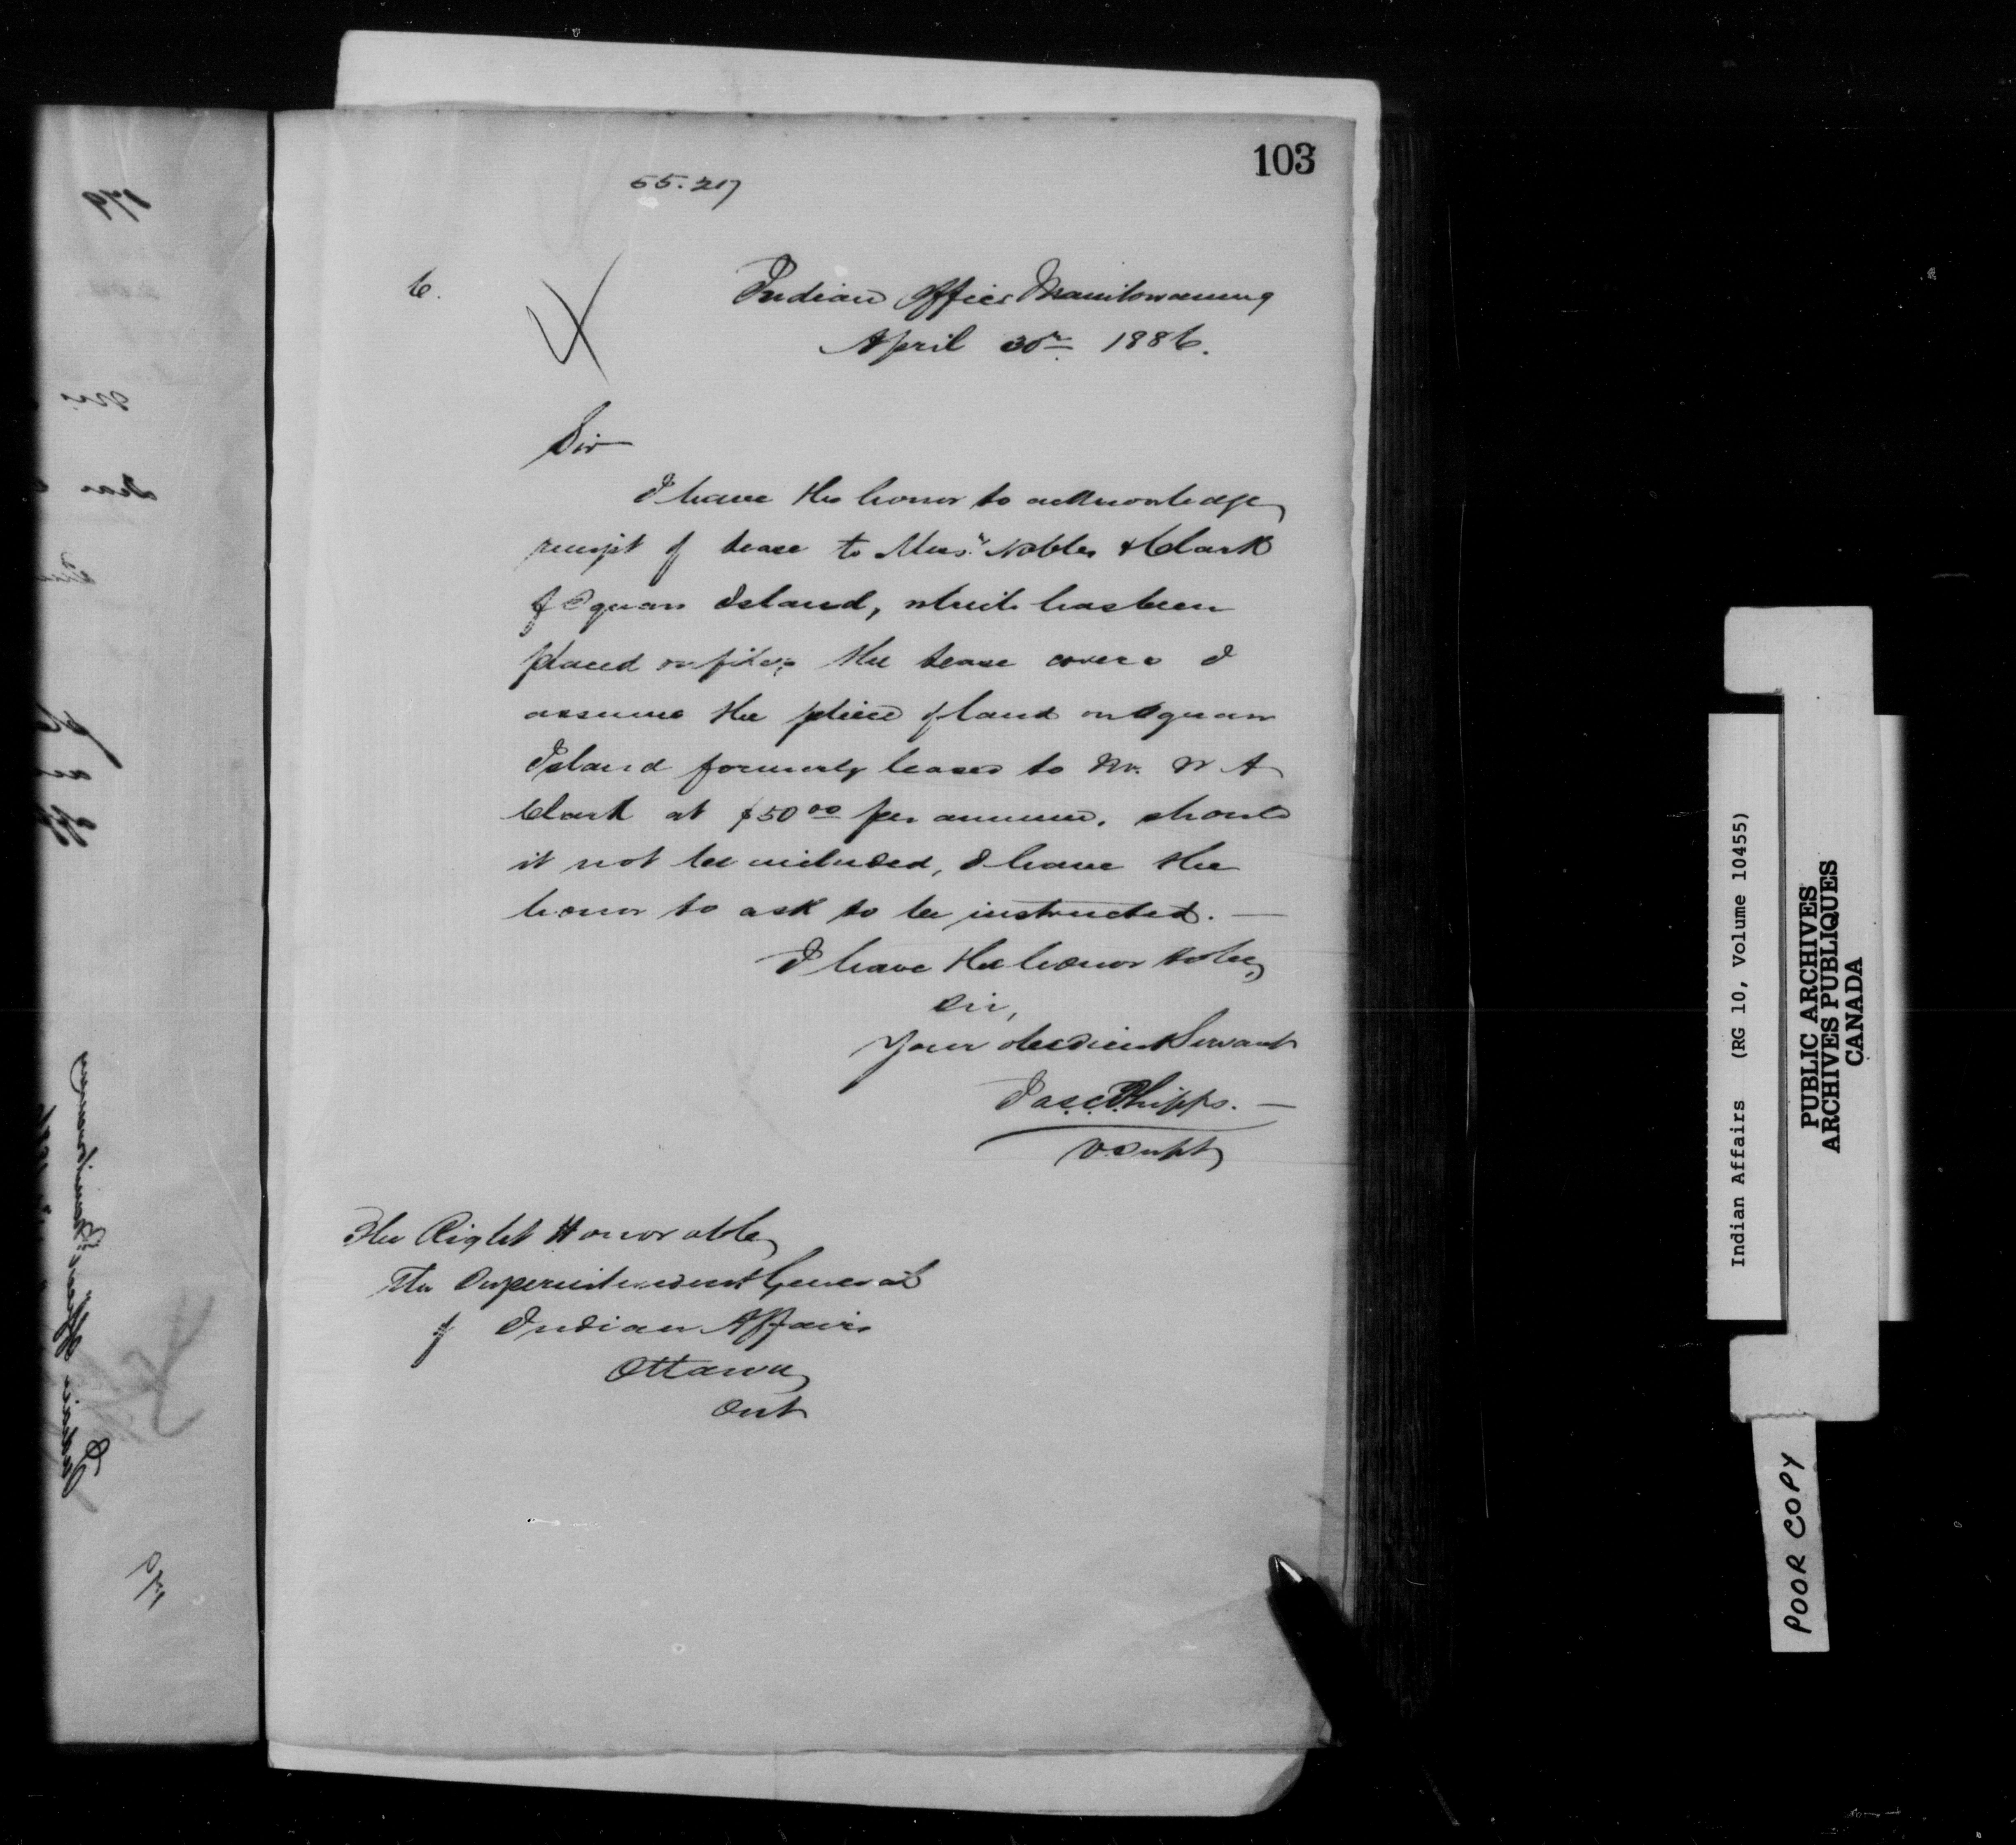 103
55.217
6.
Indian Office Manitowaning
April 30th 1886.
Sir
I have the honor to acknowledge
receipt of lease to Messrs Nobles & Clark
of Squaw Island, which has been
placed on file; the lease covers I
assume the piece of land on Squaw
Island formerly leased to Mr. W A
Clark at $50 00 per annum, should
it not be included, I have the
honor to ask to be instructed. —
I have the honor to be,
Sir,
Your obedient Servant
Jas. C. Phipps. —
V. Supt
The Right Honorable
The Superintendent General
of Indian Affairs
Ottawa
Ont
Indian Affairs (RG 10, Volume 10455)
PUBLIC ARCHIVES
ARCHIVES PUBLIQUES
CANADA
POOR COPY